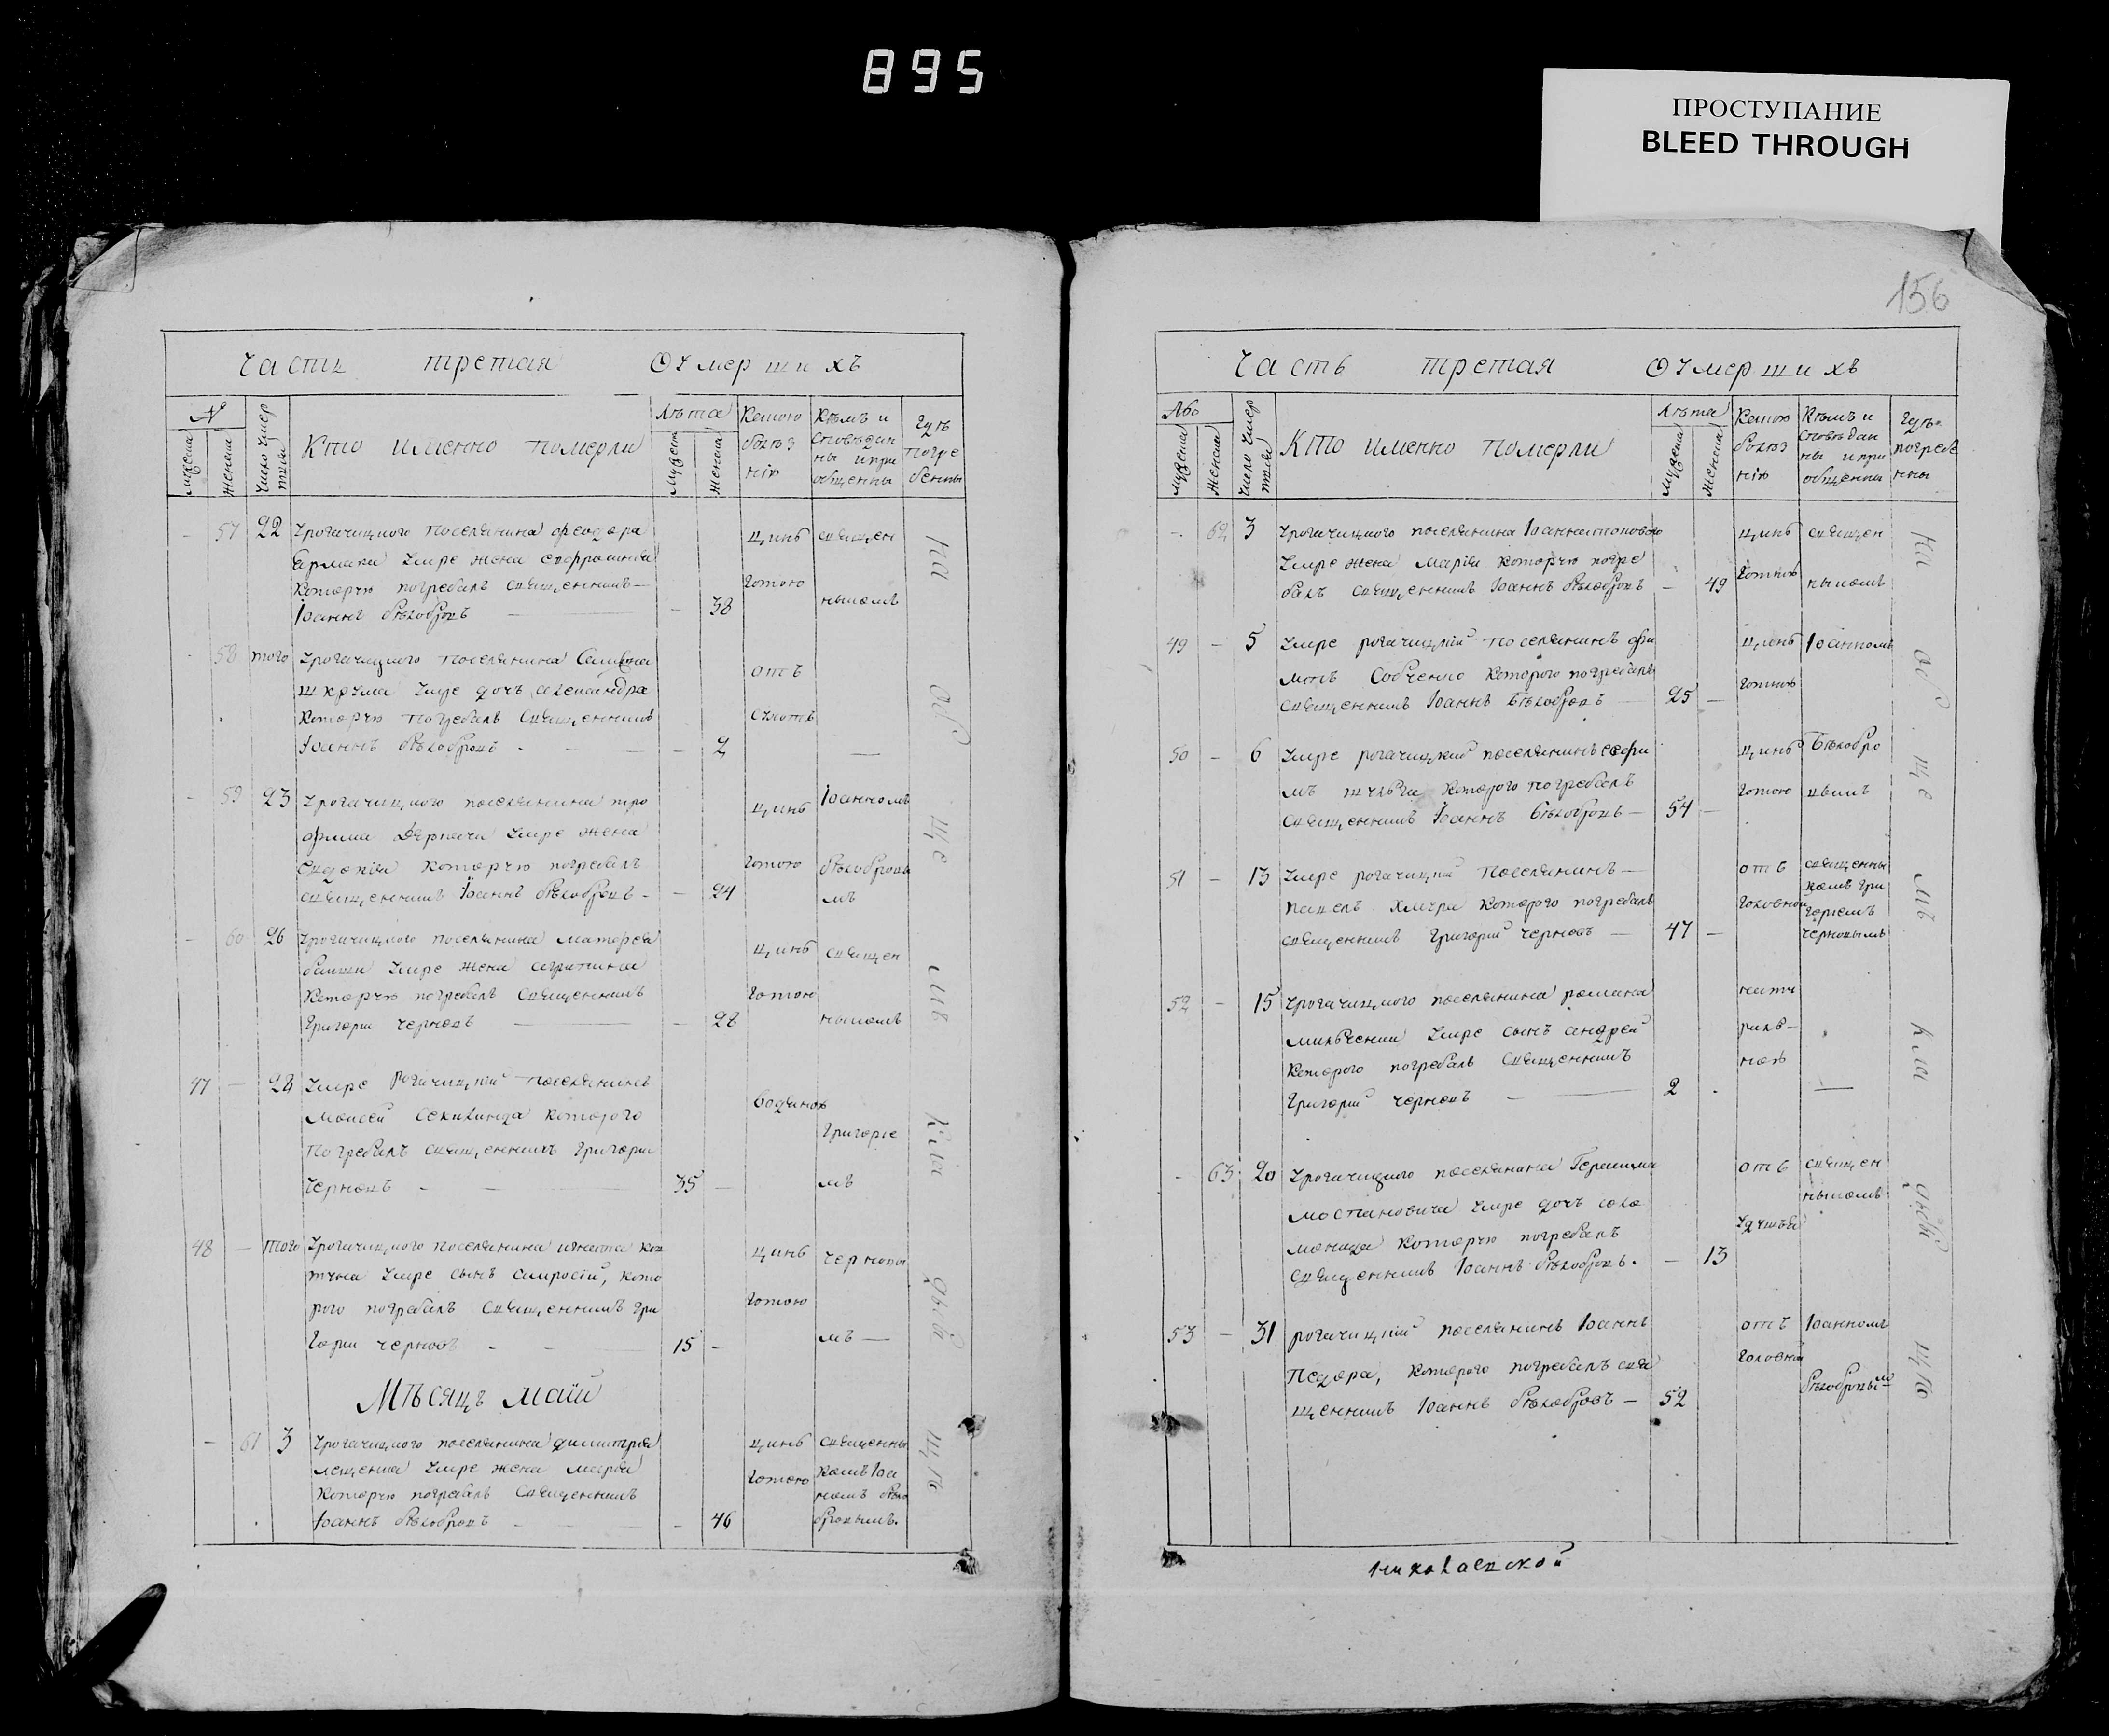 895
ПРОСТУПАНИЕ
BLEED THROUGH
Часть третая О умершихъ
№
мужеска
женска
число умер
Кто именно померли
Лѣта
мужеск
женска
Кетою
болѣз
нію
Кѣмъ и
сповѣдан
ны и при
общенны
гдѣ
погре
бенны
- 57 22 Урогачицкого поселянина Феодора
Ермака умре жена Евфросинія
Которую погребалъ священникъ —
Іоаннъ Бѣлобровъ — 38
цинготою
священ
никомъ
- 58 того Урогачицкого поселянина Симеона
умре дочъ Александра
Которую погребалъ священникъ
Іоаннъ Бѣлобровъ - — 2
отъ
—
- 59 23 Урогачицкого поселянина Тро
фима Деркача умре жена
Евдокія Которую погребалъ
священникъ Іоаннъ Бѣлобровъ - — 24
цинготою
Іоанномъ
Бѣлобровы
мъ
- 60 26 Урогачицкого поселянина Матфея
умре жена Агрипина
Которую погребалъ священникъ
Григорій Черновъ — 28
цинготою
священ
никомъ
47 — 28 Умре рогачицкій поселянинъ
Моисей Которого
погребалъ священникъ Григорій
Черновъ - — 35 —
водяною
Григоріе
мъ
48 — того Урогачицкого поселянина Игната
умре сынъ Амвросій, кото
рого погребалъ священникъ Гри
горій Черновъ - — 15 -
цинготою
Черновы
мъ —
Мѣсяцъ маій
- 61 3 Урогачицкого поселянина Димитрія
Лещенка умре жена Марія
Которую погребалъ священникъ
Іоаннъ Бѣлобровъ — 46
цинготою
священни
комъ Іоа
номъ Бѣло
бровымъ.
на об ще мъ кла дби щѣ
156
Часть третая О умершихъ
мужеска
женска
число умер
Кто именно померли
Лѣта
мужеска
женска
Кетою
болѣз
нію
Кѣмъ и
сповѣдан
ны и при
общенны
гдѣ
погребе
нны
- 62 3 Урогачицкого поселянина Іоанна
умре жена Марія Которую погре
балъ священникъ Іоаннъ Бѣлобровъ — 49
цинготою
священ
никомъ
49 — 5 Умре рогачицкій поселянинъ Фи
Собченко Которого погребалъ
священникъ Іоаннъ Бѣлобровъ — 25 —
цинготою
Іоанномъ
50 — 6 Умре рогачицкій поселянинъ Ефи
мъ Шульга Которого погребалъ
священникъ Іоаннъ Бѣлобровъ — 54 —
цинготою
Бѣлобро
вымъ
51 — 13 Умре рогачицкій поселянинъ —
Павелъ Хмура Которого погребалъ
священникъ Григорій Черновъ — 47 —
отъ
головной
священни
комъ Гри
горіемъ
Черновымъ
52 — 15 Урогачицкого поселянина Романа
умре сынъ Андрей
Которого погребалъ священникъ
Григорій Черновъ — 2 -
нату
раль-
ною
—
- 63 20 Урогачицкого поселянина Герасима
Мостановича умре дочъ Сола
монида Которую погребалъ
священникъ Іоаннъ Бѣлобровъ. — 13
отъ
удушья
священ
никомъ
53 — 31 рогачицкій поселянинъ Іоаннъ
Которого погребалъ свя
щенникъ Іоаннъ Бѣлобровъ — 52
отъ
головной
Іоанномъ
Бѣлобровымъ
На об ще мъ кла дби щѣ
николаевской